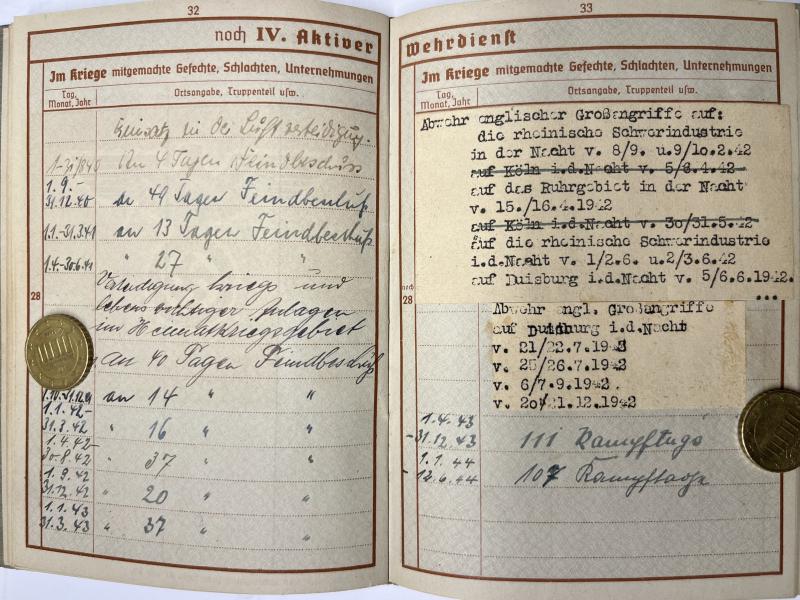 32
noch IV. Aktiver
Im Kriege mitgemachte Gefechte, Schlachten, Unternehmungen
Tag, Monat, Jahr
Ortsangabe, Truppenteil usw.
Einsatz in der Luftverteidigung.
An 4 Tagen Feindbeschuss
1.9.-
31.12.40 an 49 Tagen Feindbeschuß
1.1.-31.3.41 an 13 Tagen Feindbeschuß
1.4.-30.6.41 " 27 " "
Verteidigung kriegs- und
lebenswichtiger Anlagen
im Heimatkriegsgebiet
28
an 40 Tagen Feindbeschuß
an 14 " "
1.1.42-
31.3.42 " 16 " "
1.4.42-
30.8.42 " 37 " "
1.9.42
31.12.42 " 20 " "
1.1.43
31.3.43 " 37 " "
33
Wehrdienst
Im Kriege mitgemachte Gefechte, Schlachten, Unternehmungen
Tag, Monat, Jahr
Ortsangabe, Truppenteil usw.
Abwehr englischer Großangriffe auf:
die rheinische Schwerindustrie
in der Nacht v. 8/9. u.9/10.2.42
auf Köln i.d.Nacht v. 5/6.4.42
auf das Ruhrgebiet in der Nacht
v. 15./16.4.1942
auf Köln i.d.Nacht v. 30/31.5.42
auf die rheinische Schwerindustrie
i.d.Nacht v. 1/2.6. u.2/3.6.42
auf Duisburg i.d.Nacht v. 5/6.6.1942.
...
noch
28
Abwehr engl. Großangriffe
auf Duisburg i.d.Nacht
v. 21/22.7.1942
v. 25/26.7.1942
v. 6/7.9.1942.
v. 20/21.12.1942
1.4.43
-31.12.43 111 Kampftage
1.1.44
-12.6.44 107 Kampftage